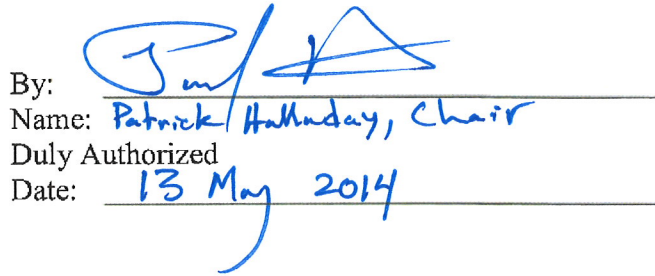 By:
Name: Patrick Halladay, Chair
Duly Authorized
Date: 13 May 2014